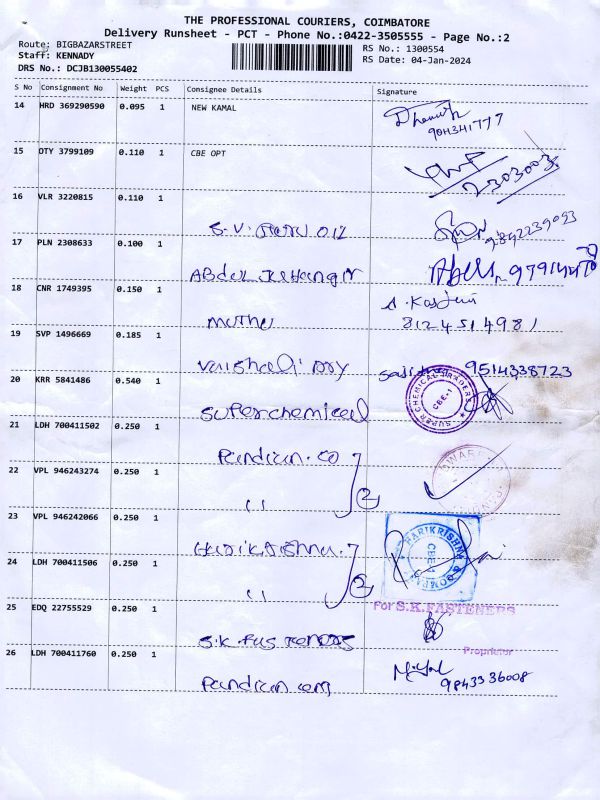 THE PROFESSIONAL COURIERS, COIMBATORE
Delivery Runsheet - PCT - Phone No.:0422-3505555 - Page No.:2
Route: BIGBAZARSTREET
RS No.: 1300554
Staff: KENNADY
RS Date: 04-Jan-2024
DRS No.: DCJB130055402
S No Consignment No Weight PCS Consignee Details Signature
14 HRD 369290590 0.095 1 NEW KAMAL
15 DTY 3799109 0.110 1 CBE OPT
2303003
16 VLR 3220815 0.110 1
S.V. 9842239093
17 PLN 2308633 0.100 1
ABdul
18 CNR 1749395 0.150 1
muthu 8124514981
19 SVP 1496669 0.185 1
vaishali Dry 9514338723
20 KRR 5841486 0.540 1
superchemical
SUPER CHEMICAL TRADERS
CBE-1
21 LDH 700411502 0.250 1
Pandian.co
22 VPL 946243274 0.250 1
11 2
23 VPL 946242066 0.250 1
Harikrishna.
HARIKRISHNA &
24 LDH 700411506 0.250 1
11 2
25 EDQ 22755529 0.250 1
For S.K.FASTENERS
S.K fasteners
Proprietor
26 LDH 700411760 0.250 1
Pandian com 9843336008